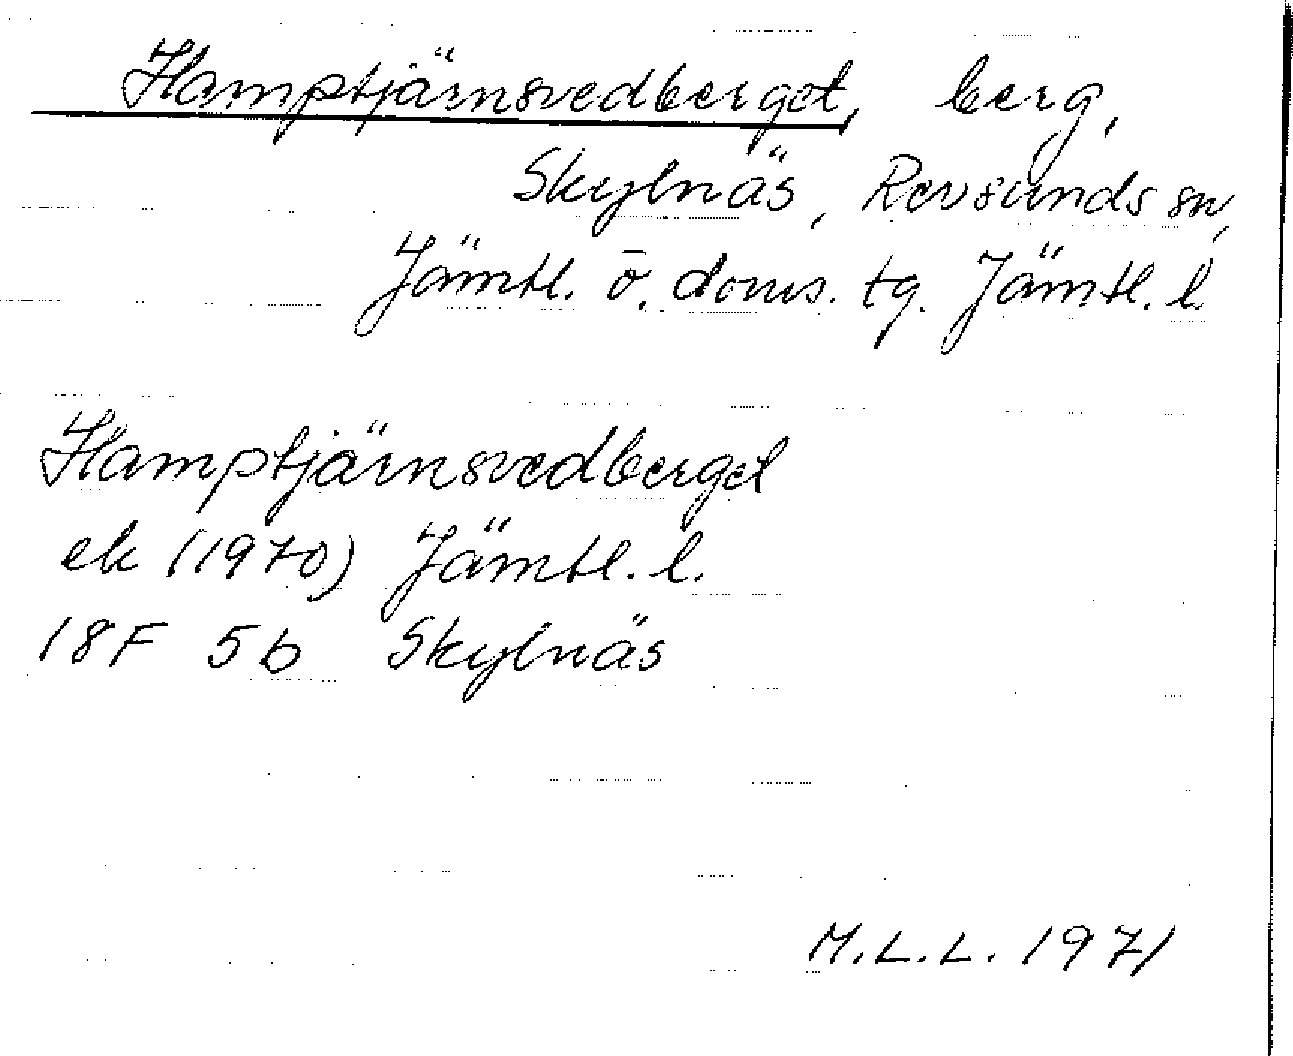 Hamptjärnsvedberget, berg,
Skylnäs, Revsunds sn,
Jämtl. ö. doms. tg. Jämtl. l.
Hamptjärnsvedberget
ek (1970) Jämtl. l.
18F 5b Skylnäs
M.L.L. 1971